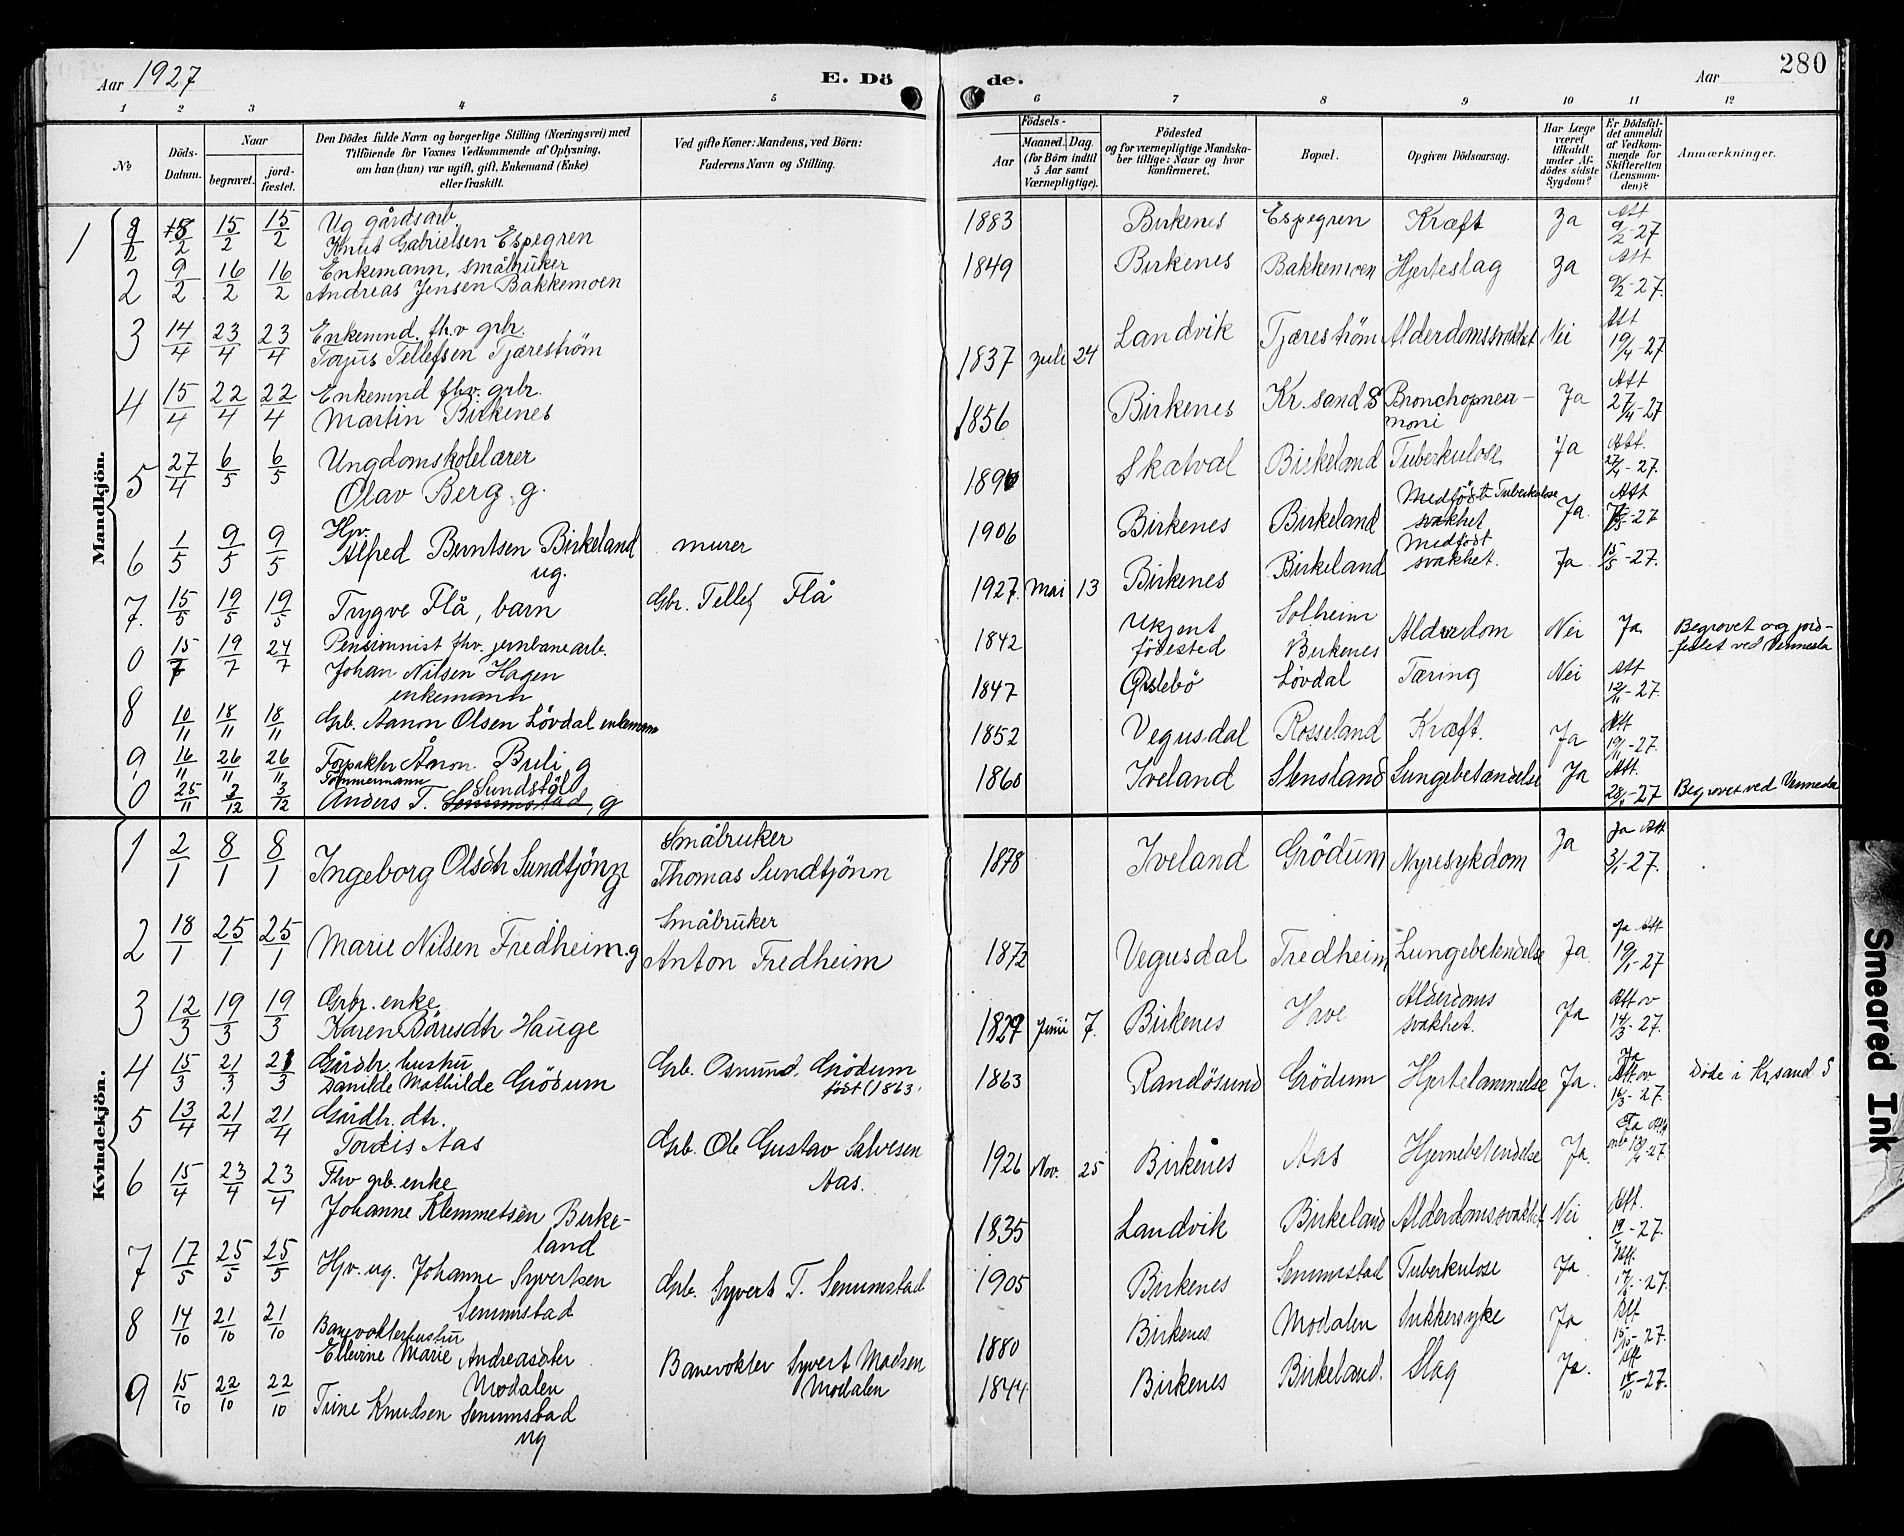 Aar 1927 E. Dö de. Aar 280
1 2 3 4 5 6 7 8 9 10 11 12
№ Döds-Datum. Naar begravet. jordfæstet. Den Dödes fulde Navn og borgerlige Stilling (Næringsvei) med Tilföiende for Voxnes Vedkommende af Oplysning, om han (hun) var ugift, gift, Enkemand (Enke) eller fraskilt. Ved gifte Koner: Mandens, ved Börn: Faderens Navn og Stilling. Födsels- Aar Maaned. Dag. (for Börn indtil 5 Aar samt Værnepligtige). Födested og for værnepligtige Mandskaber tillige: Naar og hvor konfirmeret. Bopæl. Opgiven Dödsaarsag. Har Læge været tilkaldt under Afdödes sidste Sygdom? Er Dödsfaldet anmeldt af Vedkommende for Skifteretten (Lensmanden)? Anmærkninger.
Mandkjön.
1 8/2 15/2 15/2 Ug gårdsarb Knut Gabrielsen Espegren 1883 Birkenes Espegren Kræft Ja Att 9/2-27
2 9/2 16/2 16/2 Enkemann, småbruker Andreas Jensen Bakkemoen 1849 Birkenes Bakkemoen Hjerteslag Ja Att 9/2-27.
3 14/4 23/4 23/4 Enkemnd. fh.v grbr. Torjus Tellefsen Tjæreström 1837 Juli 24 Landvik Tjæreström Alderdomssvakhet Nei Att 19/4-27
4 15/4 22/4 22/4 Enkemnd fhv. grbr. Martin Birkenes 1856 Birkenes Kr.sand S Bronchopneumoni Ja Att 27/4-27
5 27/4 6/5 6/5 Ungdomskolelærer Olav Berg g. Skatval Birkeland Tuberkulose Ja Att. 27/4-27.
6 1/5 9/5 9/5 Hjv. Alfred Berntsen Birkeland ug. murer 1906 Birkenes Birkeland Medfödt Tuberkulose svakhet Ja. Att -27
7. 15/5 19/5 19/5 Trygve Flå, barn Gbr. Tellef Flå 1927. Mai 13 Birkenes Birkeland Medfödt svakhet. Ja. 15/5-27.
0 15/7 19/7 24/7 Pensionnist fhv. jernbanearb. Johan Nilsen Hagen enkemann 1842 Ukjent födested Solheim Birkenes Alderdom Nei Ja Begravet og jordfestet ved Vennesla
8 10/11 18/11 18/11 Grb. Aanon Olsen Lövdal enkemann 1847 Öislebö Lövdal Tæring Nei Att 12/11-27.
9 16/11 26/11 26/11 Forpakter Aanon Buli g 1852 Vegusdal Rosseland Kræft. Ja Att 19/11-27.
0 25/11 3/12 3/12 Tömmermann Anders T. Sundstöl Senumstad, g 1860 Iveland Stensland Lungebetændelse Ja Att. 28/11-27 Begravet ved Vennesla
Kvindekjön.
1 2/1 8/1 8/1 Ingeborg Olsdth Sundtjönn g Småbruker Thomas Sundtjönn 1878 Iveland Grödum Nyresykdom Ja Ja Att 3/1-27.
2 18/1 25/1 25/1 Marie Nilsen Fredheim. g Småbruker Anton Fredheim 1872 Vegusdal Fredheim Lungebetendelse Ja. Ja Att 19/1-27
3 12/3 19/3 19/3 Grbr. enke Karen Böresdtr Hauge Juni 7. Birkenes Have Alderdoms svakhet. Ja Att ov 14/3-27.
4 15/3 21/3 21/3 Gårdbr. hustru Danilde Mathilde Grödum Grb. Osmund. Grödum född (1863. 1863 Randösund Grödum Hjertelammelse Ja. Ja Att ov 16/3-27. Döde i Kr.sand S
5 13/4 21/4 21/4 Gårdbr. dtr. Tordis Aas Grb. Ole Gustav Salvesen Aas. 1926 Nov. 25 Birkenes Aas Hjernebetendelse Ja. Ja Att -27.
6 15/4 23/4 23/4 Fhv grb. enke Johanne Klemmetsen Birkeland 1835 Landvik Birkeland Alderdomssvakhet Nei Att. 19/4-27.
7 17/5 25/5 25/5 Hjv. ug. Johanne Syvertsen Senumstad Grb. Syvert T. Senumstad 1905 Birkenes Senumstad Tuberkulose Ja Att. 17/5-27.
8 14/10 21/10 21/10 Banevokterhustru Ellevine Marie Andreasdter Modalen Banevokter Syvert Madsen Modalen 1880 Birkenes Modalen Sukkersyke Ja Att 15/10-27.
9 15/10 22/10 22/10 Trine Knudsen Senumstad ug 1844 Birkenes Birkeland. Slag Ja. Att 18/10-27.
Smeared Ink